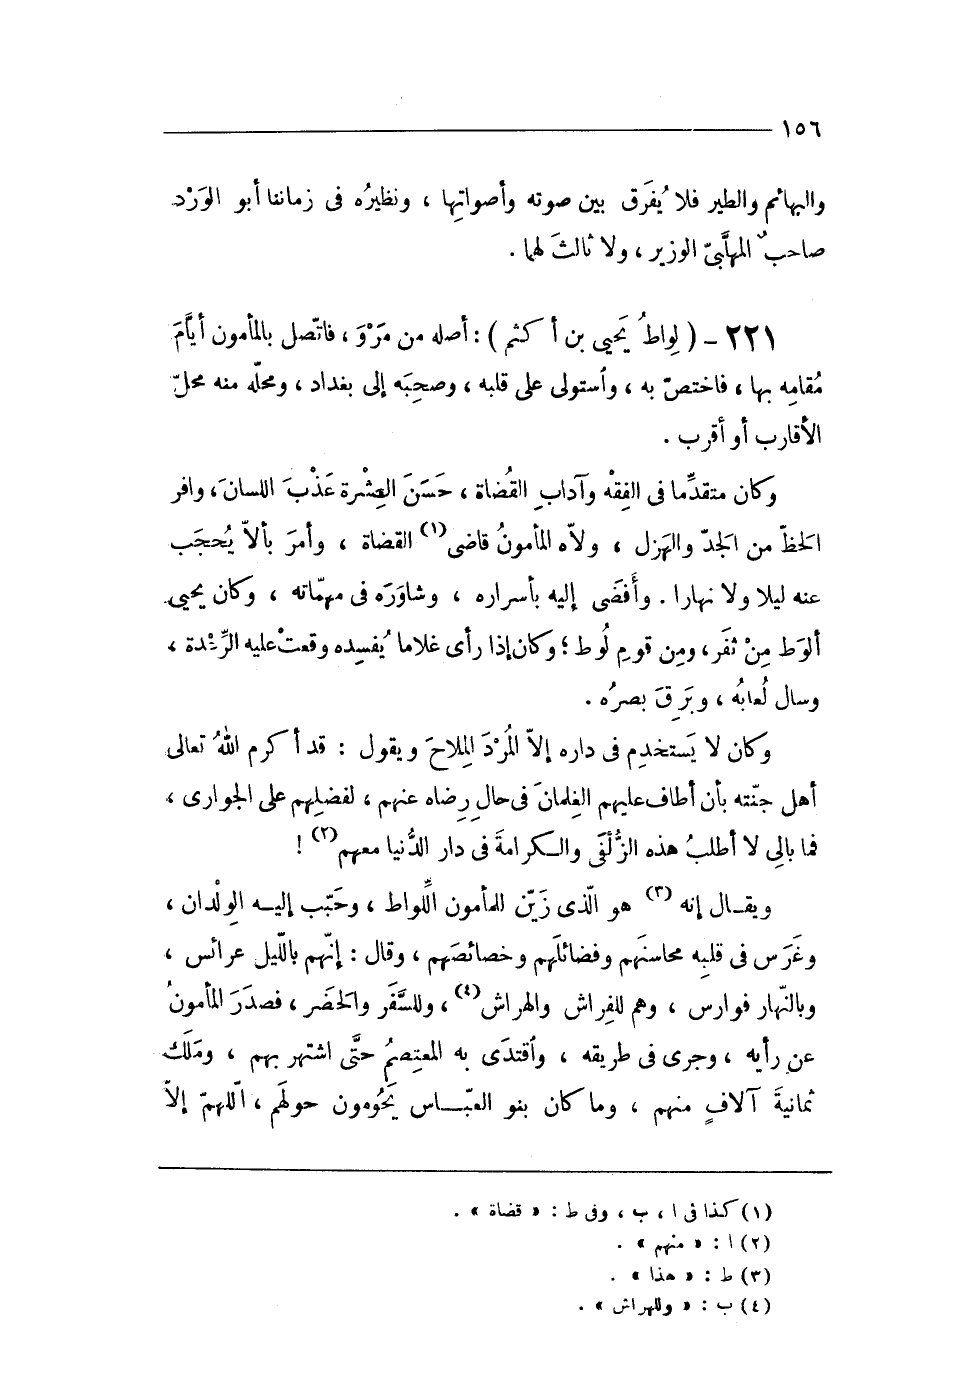 ١٥٦
والبهائم والطير فلا يُفرَق بين صوته وأصواتِها ، ونظيرُه فى زماننا أبو الوَرْد
صاحبُ المهلَّبىّ الوزير ، ولا ثالثَ لهما .
٢٢١ – ( لِواطُ يَحيى بن أكثم ) : أصله من مَرْوَ ، فاتّصل بالمأمون أيَّامَ
مُقامِه بها ، فاختصّ به ، وأستولى على قلبه ، وصحِبَه إلى بغداد ، ومحلّه منه محلّ
الأقارب أو أقرب .
وكان متقدِّما فى الفِقْه وآدابِ القُضاة ، حَسَنَ العِشْرة عَذْبَ اللسانَ، وافر
الحَظّ من الجَدّ والهَزل ، ولاّه المأمونُ قاضى(١) القضاة ، وأمرَ بألاّ يُحجَب
عنه ليلا ولا نهارا . وأَفضَى إليه بأسراره ، وشاوَرَه فى مهمّاته ، وكان يحيى
ألوَط مِنْ ثفَر، ومِن قومِ لُوط ؛ وكان إذا رأى غلاما يُفسِده وقعتْ عليه الرِّعْدة ،
وسال لُعابُه ، وبَرِقَ بصرُه .
وكان لا يَستخدِم فى داره إلاّ المُرْدَ المِلاحَ ويقول : قد أكرم اللهُ تعالى
أهل جنّته بأن أطاف عليهم الغِلمانَ فى حالِ رِضاه عنهم ، لفضلِهم على الجوارى ،
فما بالى لا أطلبُ هذه الزُّلْفَى والكرامةَ فى دار الدُّنيا معهم(٢) !
ويقـال إنه (٣) هو الّذى زَيّن للمأمون اللِّواط ، وحَبّب إليــه الوِلْدان ،
وغَرَس فى قلبِه محاسنَهم وفضائلَهم وخصائصَهم ، وقال : إنّهم باللّيل عرائس ،
وبالنّهار فوارس ، وهم للفِراش والهراش(٤) ، وللسَّفَر والحَضَر ، فصدَرَ المأمونُ
عن رأيه ، وجرى فى طريقه ، وأقتدَى به المعتصمُ حتَّى اشتهر بهم ، ومَلَك
ثمانيةَ آلافٍ منهم ، وما كان بنو العبّــاس يَحُومون حولهَم ، الّلهمّ إلاّ
(١) كذا فى ا ، ب ، وفى ط : « قضاة » .
(٢) ا : « منهم » .
(٣) ط : « هذا » .
(٤) ب : « وللهراش » .